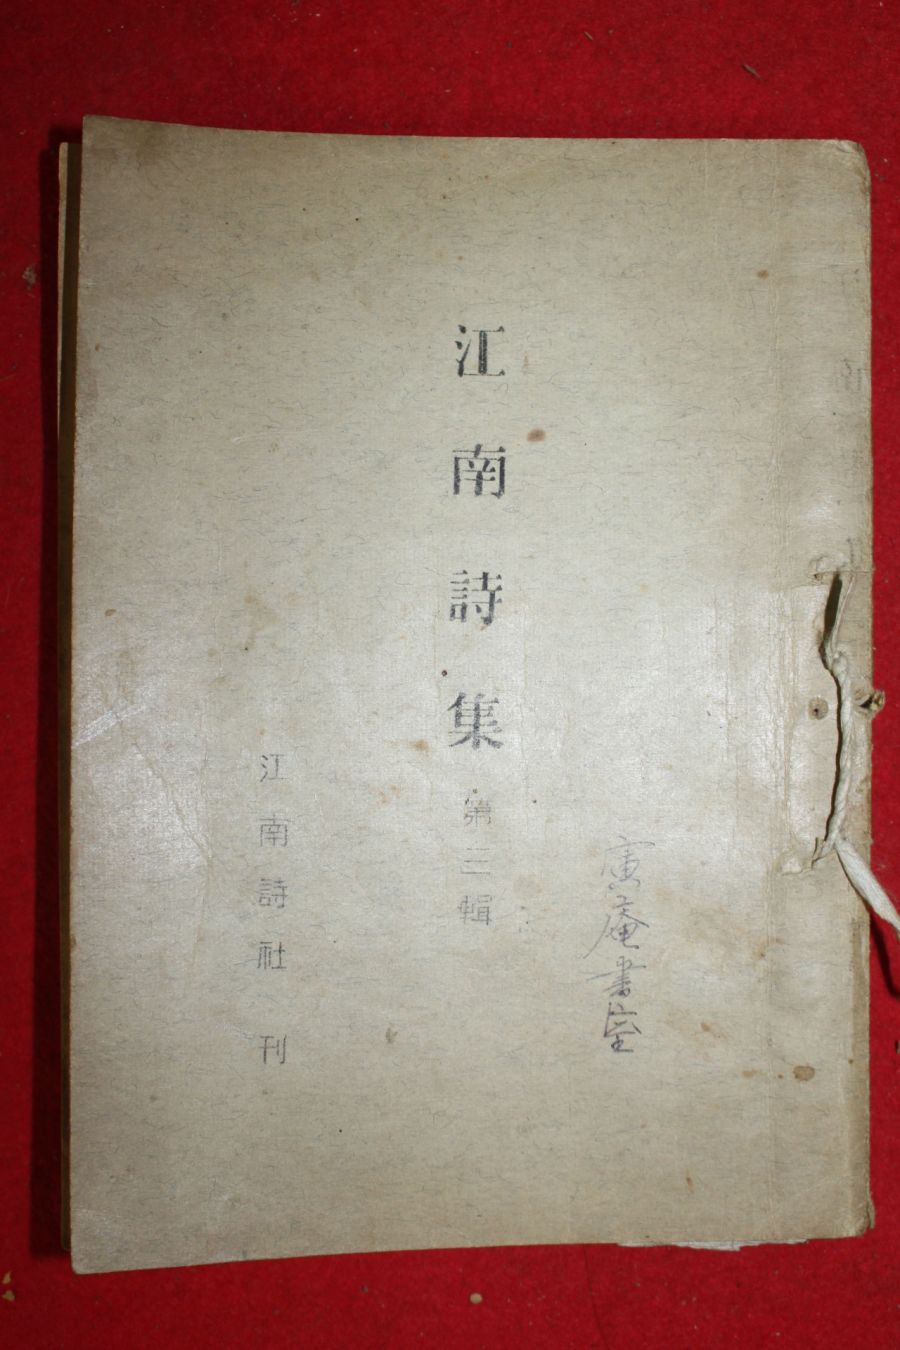 寅菴書室
江南詩集 第三輯
江南詩社 刊